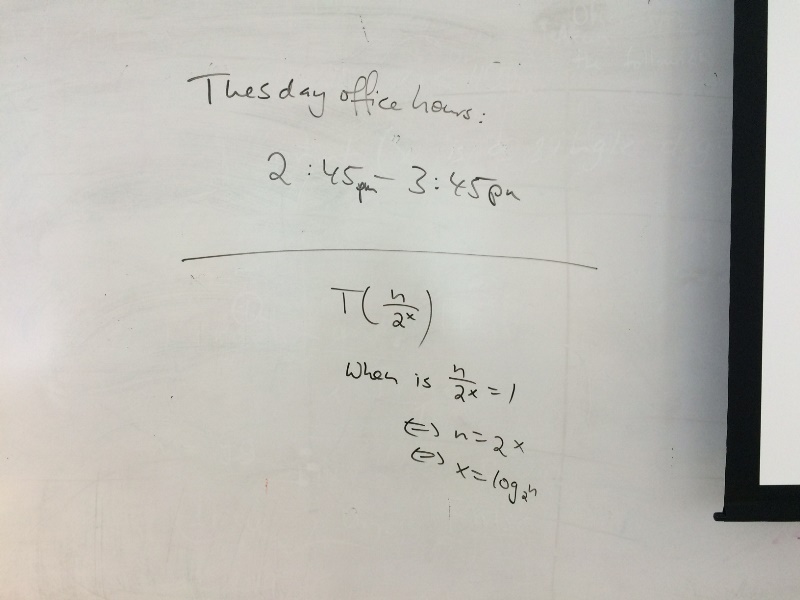 Tuesday office hours:
2:45pm - 3:45pm
T(n/2^x)
When is n/2^x = 1
⇔ n = 2^x
⇔ x = log_2 n